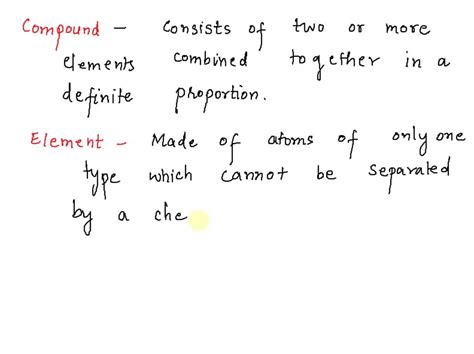 Compound – Consists of two or more
elements combined together in a
definite proportion.
Element – Made of atoms of only one
type which cannot be separated
by a che